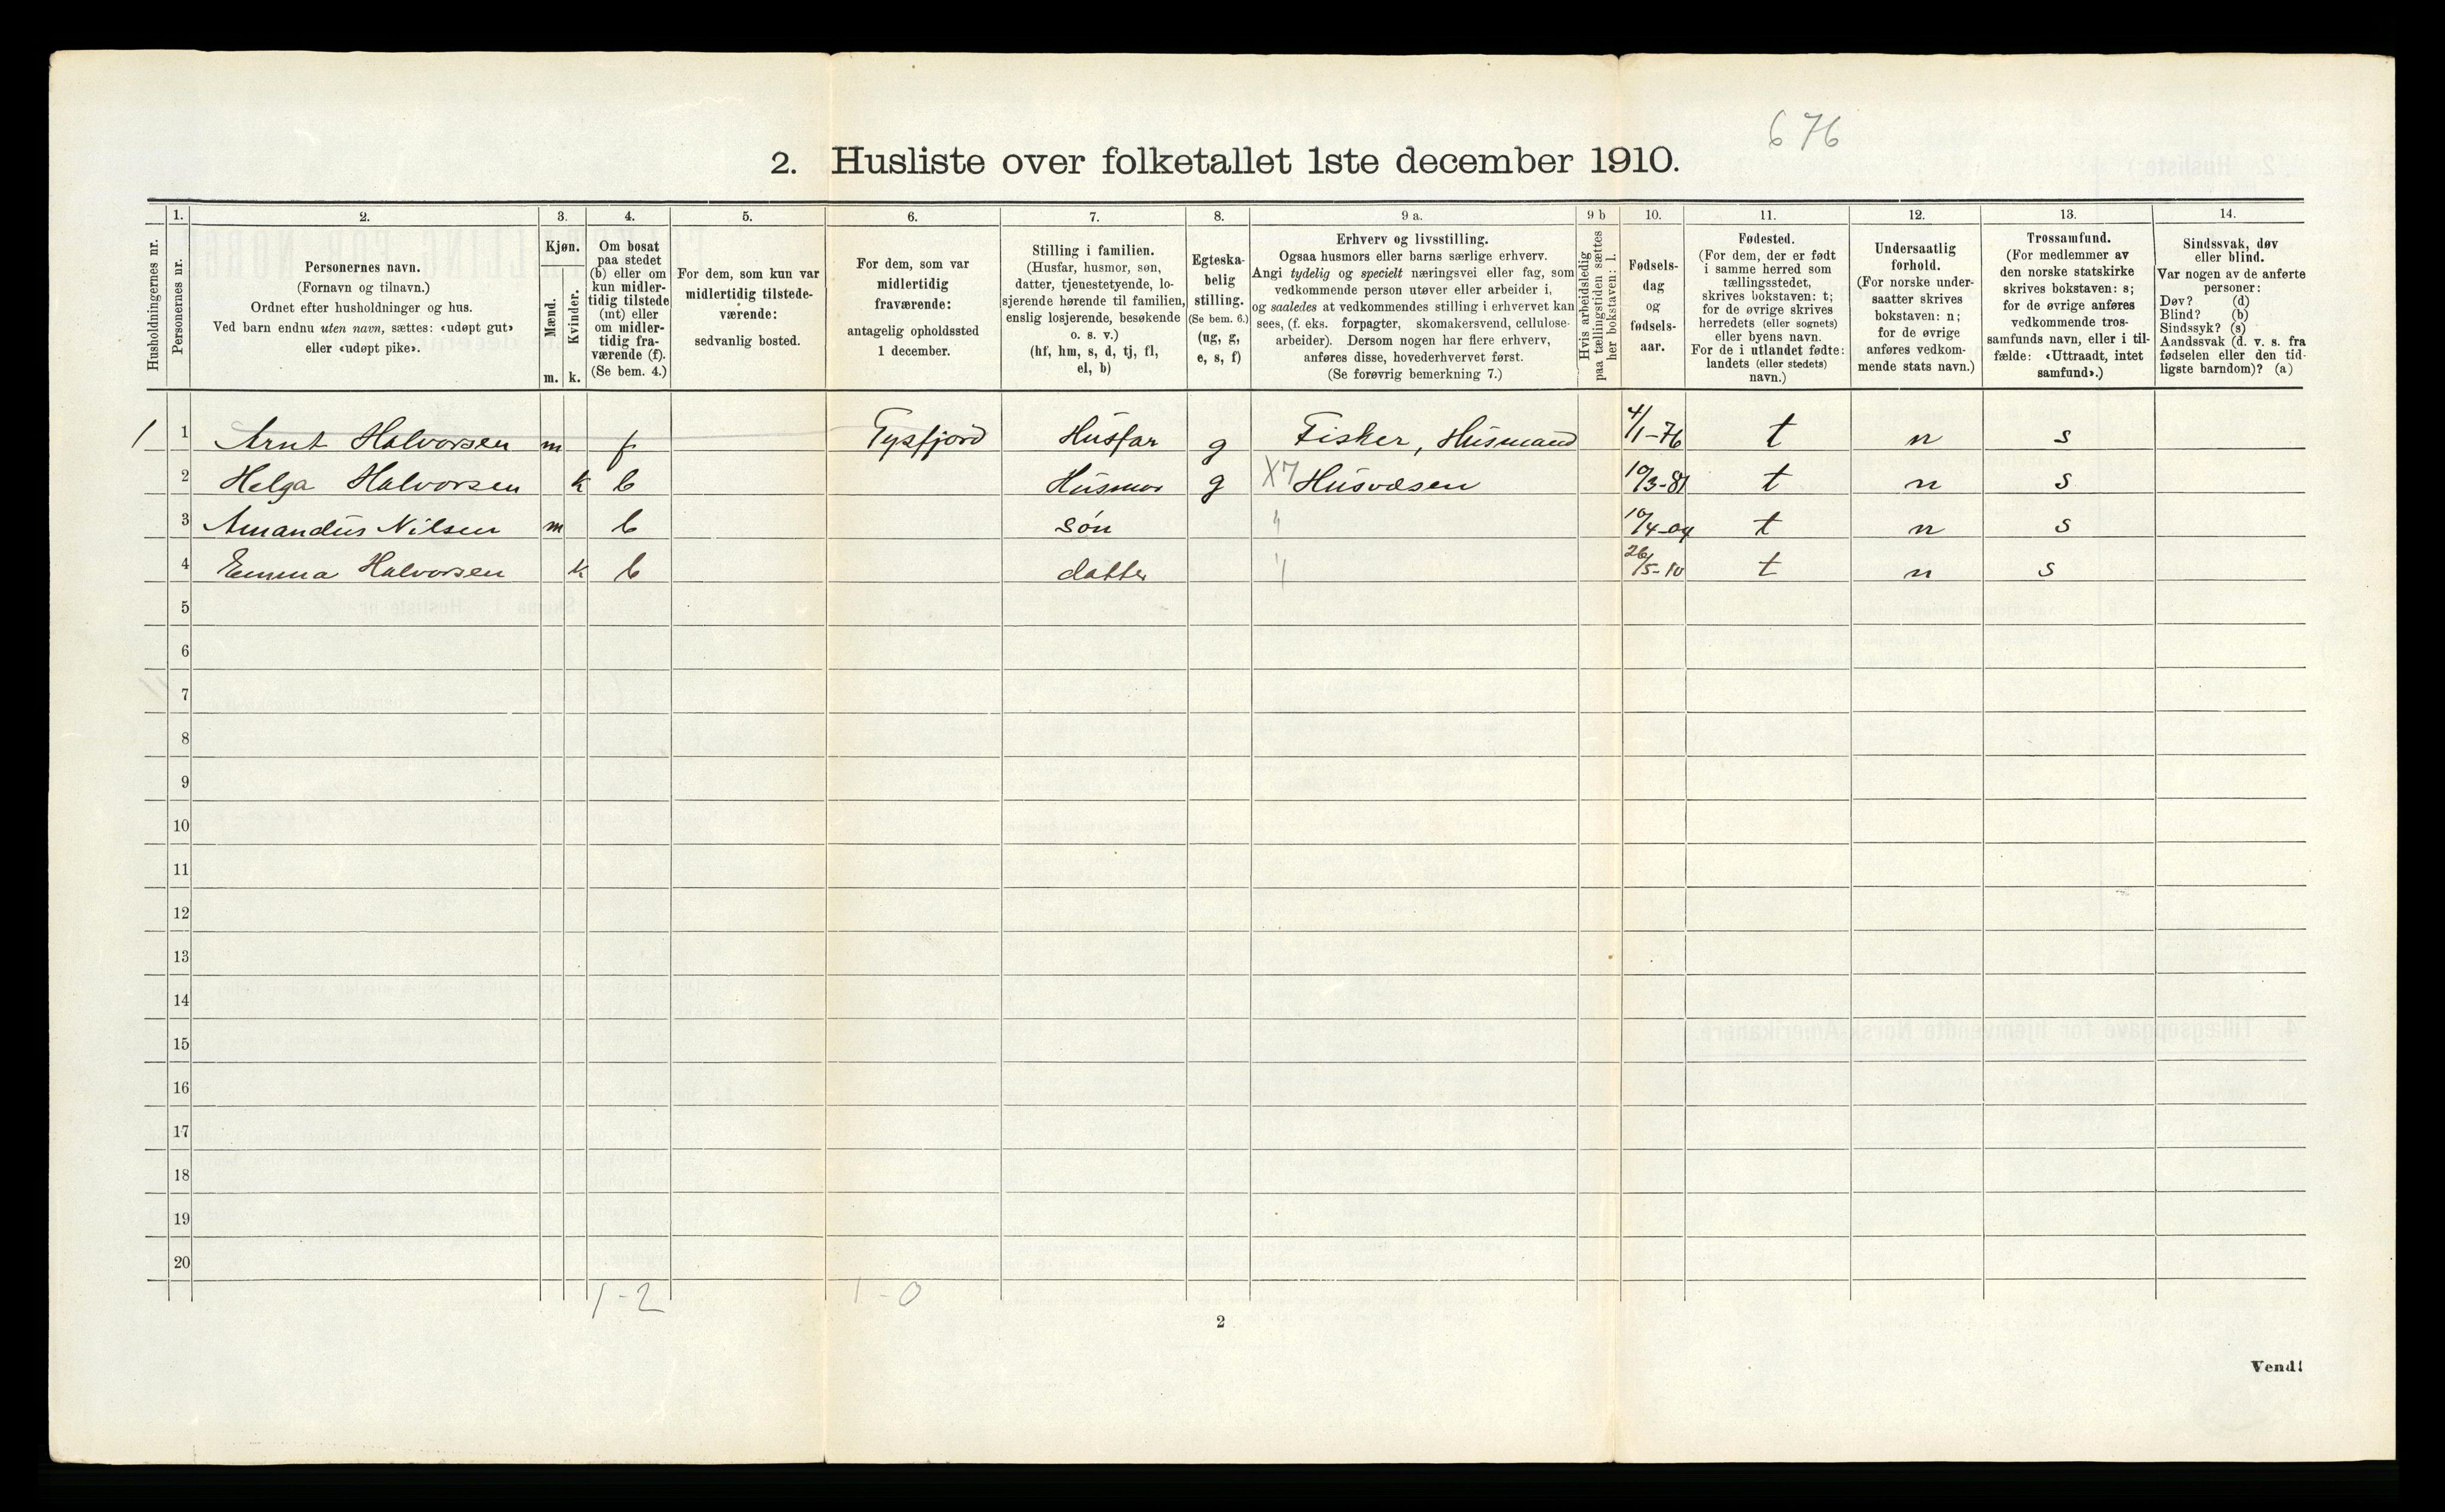 676
2. Husliste over folketallet 1ste december 1910.
Husholdningernes nr.
1.
Personernes nr.
2.
Personernes navn.
(Fornavn og tilnavn.)
Ordnet efter husholdninger og hus.
Ved barn endnu uten navn, sættes: «udøpt gut»
eller «udøpt pike».
3.
Kjøn.
Mænd.
Kvinder.
m. k.
4.
Om bosat
paa stedet
(b) eller om
kun midler-
tidig tilstede
(mt) eller
om midler-
tidig fra-
værende (f).
(Se bem. 4.)
5.
For dem, som kun var
midlertidig tilstede-
værende:
sedvanlig bosted.
6.
For dem, som var
midlertidig
fraværende:
antagelig opholdssted
1 december.
7.
Stilling i familien.
(Husfar, husmor, søn,
datter, tjenestetyende, lo-
sjerende hørende til familien,
enslig losjerende, besøkende
o. s. v.)
(hf, hm, s, d, tj, fl,
el, b)
8.
Egteska-
belig
stilling.
(Se bem. 6.)
(ug, g,
e, s, f)
9 a.
Erhverv og livsstilling.
Ogsaa husmors eller barns særlige erhverv.
Angi tydelig og specielt næringsvei eller fag, som
vedkommende person utøver eller arbeider i,
og saaledes at vedkommendes stilling i erhvervet kan
sees, (f. eks. forpagter, skomakersvend, cellulose-
arbeider). Dersom nogen har flere erhverv,
anføres disse, hovederhvervet først.
(Se forøvrig bemerkning 7.)
9 b
Hvis arbeidsledig
paa tællingstiden sættes
her bokstaven: l.
10.
Fødsels-
dag
og
fødsels-
aar.
11.
Fødested.
(For dem, der er født
i samme herred som
tællingsstedet,
skrives bokstaven: t;
for de øvrige skrives
herredets (eller sognets)
eller byens navn.
For de i utlandet fødte:
landets (eller stedets)
navn.)
12.
Undersaatlig
forhold.
(For norske under-
saatter skrives
bokstaven: n;
for de øvrige
anføres vedkom-
mende stats navn.)
13.
Trossamfund.
(For medlemmer av
den norske statskirke
skrives bokstaven: s;
for de øvrige anføres
vedkommende tros-
samfunds navn, eller i til-
fælde: «Uttraadt, intet
samfund».)
14.
Sindssvak, døv
eller blind.
Var nogen av de anførte
personer:
Døv? (d)
Blind? (b)
Sindssyk? (s)
Aandssvak (d. v. s. fra
fødselen eller den tid-
ligste barndom)? (a)
1 1 Arnt Halvorsen m f Tysfjord Husfar g Fisker, Husmand 4/1-76 t n s
2 Helga Halvorsen k b Husmor g X7 Husvæsen 10/3-81 t n s
3 Amandus Nilsen m b søn " 10/4-04 t n s
4 Emma Halvorsen k b datter " 26/5-10 t n s
5
6
7
8
9
10
11
12
13
14
15
16
17
18
19
20
1-2 1-0
2
Vend!